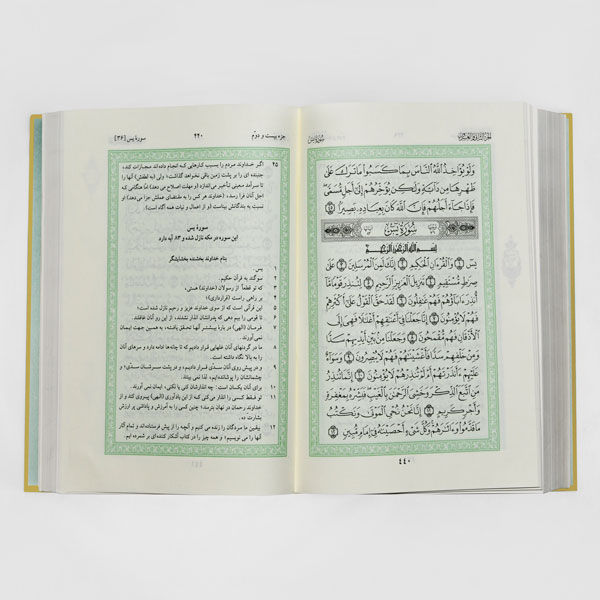 وَلَوْ يُؤَاخِذُ اللَّهُ النَّاسَ بِمَا كَسَبُوا مَا تَرَكَ عَلَىٰ
ظَهْرِهَا مِن دَابَّةٍ وَلَٰكِن يُؤَخِّرُهُمْ إِلَىٰ أَجَلٍ مُّسَمًّى
فَإِذَا جَاءَ أَجَلُهُمْ فَإِنَّ اللَّهَ كَانَ بِعِبَادِهِ بَصِيرًا ٤٥
سُورَةُ يس
بِسْمِ اللَّهِ الرَّحْمَٰنِ الرَّحِيمِ
يس ١ وَالْقُرْآنِ الْحَكِيمِ ٢ إِنَّكَ لَمِنَ الْمُرْسَلِينَ ٣ عَلَىٰ
صِرَاطٍ مُّسْتَقِيمٍ ٤ تَنزِيلَ الْعَزِيزِ الرَّحِيمِ ٥ لِتُنذِرَ قَوْمًا مَّا
أُنذِرَ آبَاؤُهُمْ فَهُمْ غَافِلُونَ ٦ لَقَدْ حَقَّ الْقَوْلُ عَلَىٰ أَكْثَرِهِمْ
فَهُمْ لَا يُؤْمِنُونَ ٧ إِنَّا جَعَلْنَا فِي أَعْنَاقِهِمْ أَغْلَالًا فَهِيَ إِلَى
الْأَذْقَانِ فَهُم مُّقْمَحُونَ ٨ وَجَعَلْنَا مِن بَيْنِ أَيْدِيهِمْ سَدًّا
وَمِنْ خَلْفِهِمْ سَدًّا فَأَغْشَيْنَاهُمْ فَهُمْ لَا يُبْصِرُونَ ٩ وَسَوَاءٌ
عَلَيْهِمْ أَأَنذَرْتَهُمْ أَمْ لَمْ تُنذِرْهُمْ لَا يُؤْمِنُونَ ١٠ إِنَّمَا تُنذِرُ
مَنِ اتَّبَعَ الذِّكْرَ وَخَشِيَ الرَّحْمَٰنَ بِالْغَيْبِ فَبَشِّرْهُ بِمَغْفِرَةٍ
وَأَجْرٍ كَرِيمٍ ١١ إِنَّا نَحْنُ نُحْيِي الْمَوْتَىٰ وَنَكْتُبُ
مَا قَدَّمُوا وَآثَارَهُمْ وَكُلَّ شَيْءٍ أَحْصَيْنَاهُ فِي إِمَامٍ مُّبِينٍ ١٢
٤٤٠
جزء بیست و دوّم ۴۴۰ سورهٔ یس [۳۶]
۴۵ اگر خداوند مردم را بسبب کارهایی که انجام داده‌اند مجازات کند،
جنبنده ای را بر پشت زمین باقی نخواهد گذاشت؛ ولی (به لطفش) آنها را
تا سرآمد معینی تأخیر می اندازد (و مهلت اصلاح می دهد) امّا هنگامی که
اجل آنان فرا رسد، (خداوند هر کس را به مقتضای عملش جزا می دهد) او
نسبت به بندگانش بیناست (و از اعمال و نیات همه آگاه است).
سورهٔ یس
این سوره در مکه نازل شده و ۸۳ آیه دارد
بنام خداوند بخشنده بخشایشگر
۱ یس.
۲ سوگند به قرآن حکیم.
۳ که تو قطعاً از رسولان (خداوند) هستی،
۴ بر راهی راست (قرارداری)؛
۵ این قرآنی است که از سوی خداوند عزیز و رحیم نازل شده است
۶ تا قومی را بیم دهی که پدرانشان انذار نشدند، از این رو آنان غافلند.
۷ فرمان (الهی) در بارهٔ بیشتر آنها تحقق یافته، به همین جهت ایمان
نمی آورند.
۸ ما در گردنهای آنان غلهایی قرار دادیم که تا چانه‌ها ادامه دارد و سرهای آنان
را به بالا نگاه داشته است.
۹ و در پیش روی آنان سدّی قرار دادیم، و در پشت سرشان سدّی؛ و
چشمانشان را پوشانده‌ایم، لذا نمی بینند.
۱۰ برای آنان یکسان است: چه انذارشان کنی یا نکنی، ایمان نمی آورند.
۱۱ تو فقط کسی را انذار می‌کنی که از این یادآوری (الهی) پیروی کند و از
خداوند رحمان در نهان بترسد؛ چنین کسی را به آمرزش و پاداشی پر ارزش
بشارت ده.
۱۲ بیقین ما مردگان را زنده می کنیم و آنچه را از پیش فرستاده‌اند و تمام آثار
آنها را می نویسیم؛ و همه چیز را در کتاب آشکار کننده‌ای بر شمرده ایم.